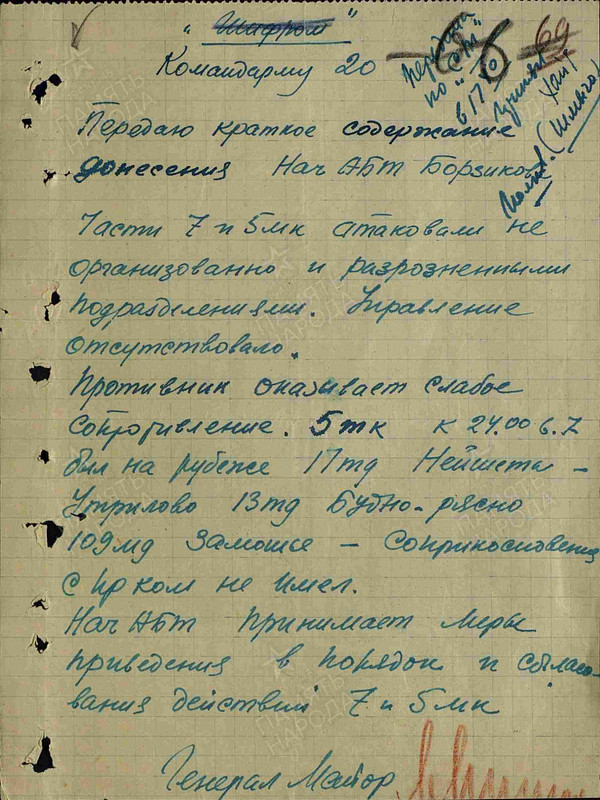 "Шифром"
66 69
Командарму 20
Передана
по "СТ"
6/7
Передаю краткое содержание
донесения Нач АБТ Борзикова
Части 7 и 5мк атаковали не
организованно и разрозненными
подразделениями. Управление
отсутствовало.
Противник оказывает слабое
сопротивление. 5тк к 24.00 6.7
был на рубеже 17тд Нейшеты –
Утрилово 13тд Будно-рясно
109мд Замошье – Соприкосновения
с пр ком не имел.
Нач АБТ принимает меры
приведения в порядок и согласо-
вания действий 7 и 5мк
Генерал Майор